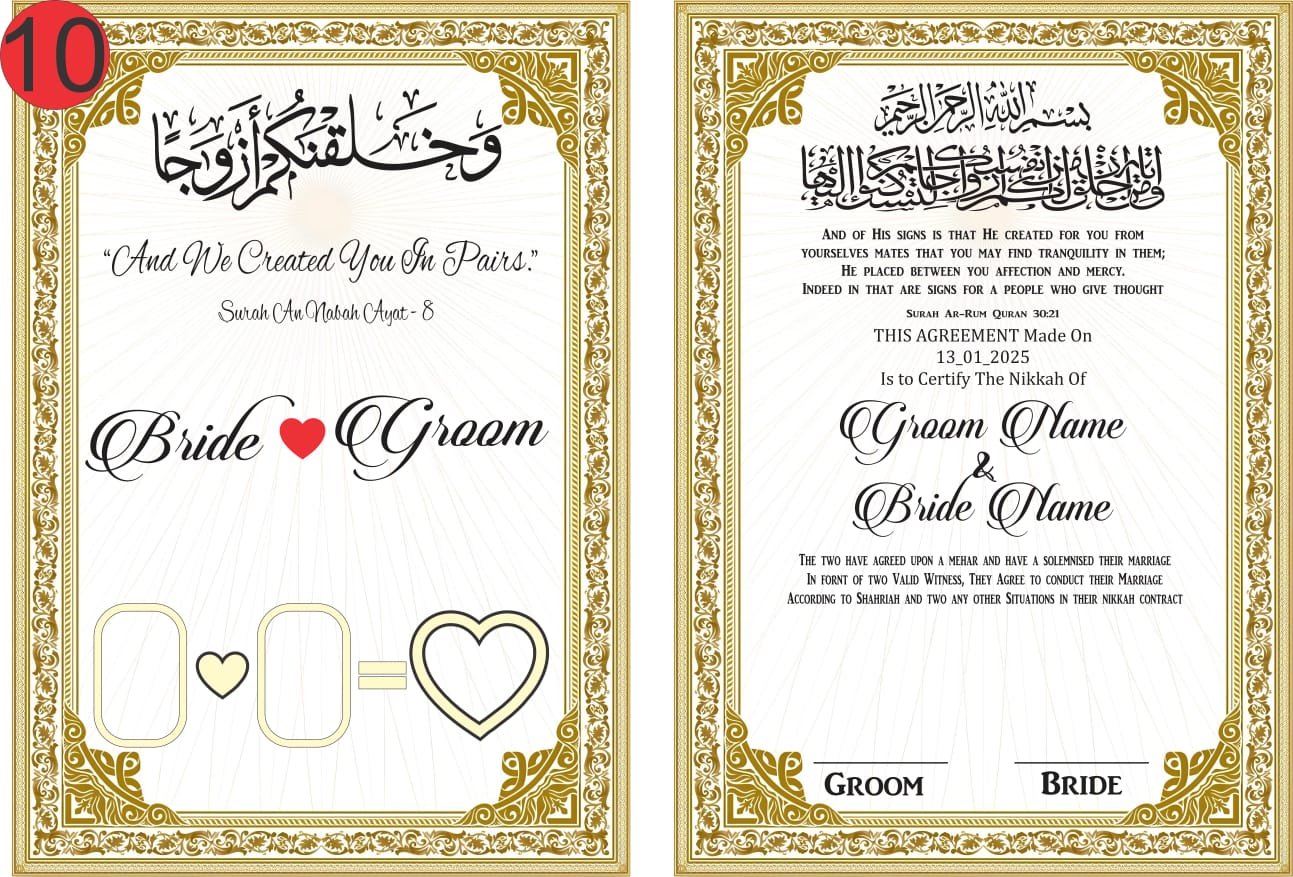 10
وَخَلَقْنَكُمْ أَزْوَجًا
“And We Created You In Pairs.”
Surah An Nabah Ayat - 8
Bride Groom
بِسْمِ اللَّهِ الرَّحْمَنِ الرَّحِيمِ
And of His signs is that He created for you from
yourselves mates that you may find tranquility in them;
He placed between you affection and mercy.
Indeed in that are signs for a people who give thought
Surah Ar-Rum Quran 30:21
THIS AGREEMENT Made On
13_01_2025
Is to Certify The Nikkah Of
Groom Name
&
Bride Name
The two have agreed upon a mehar and have a solemnised their marriage
In fornt of two Valid Witness, They Agree to conduct their Marriage
According to Shahriah and two any other Situations in their nikkah contract
Groom Bride